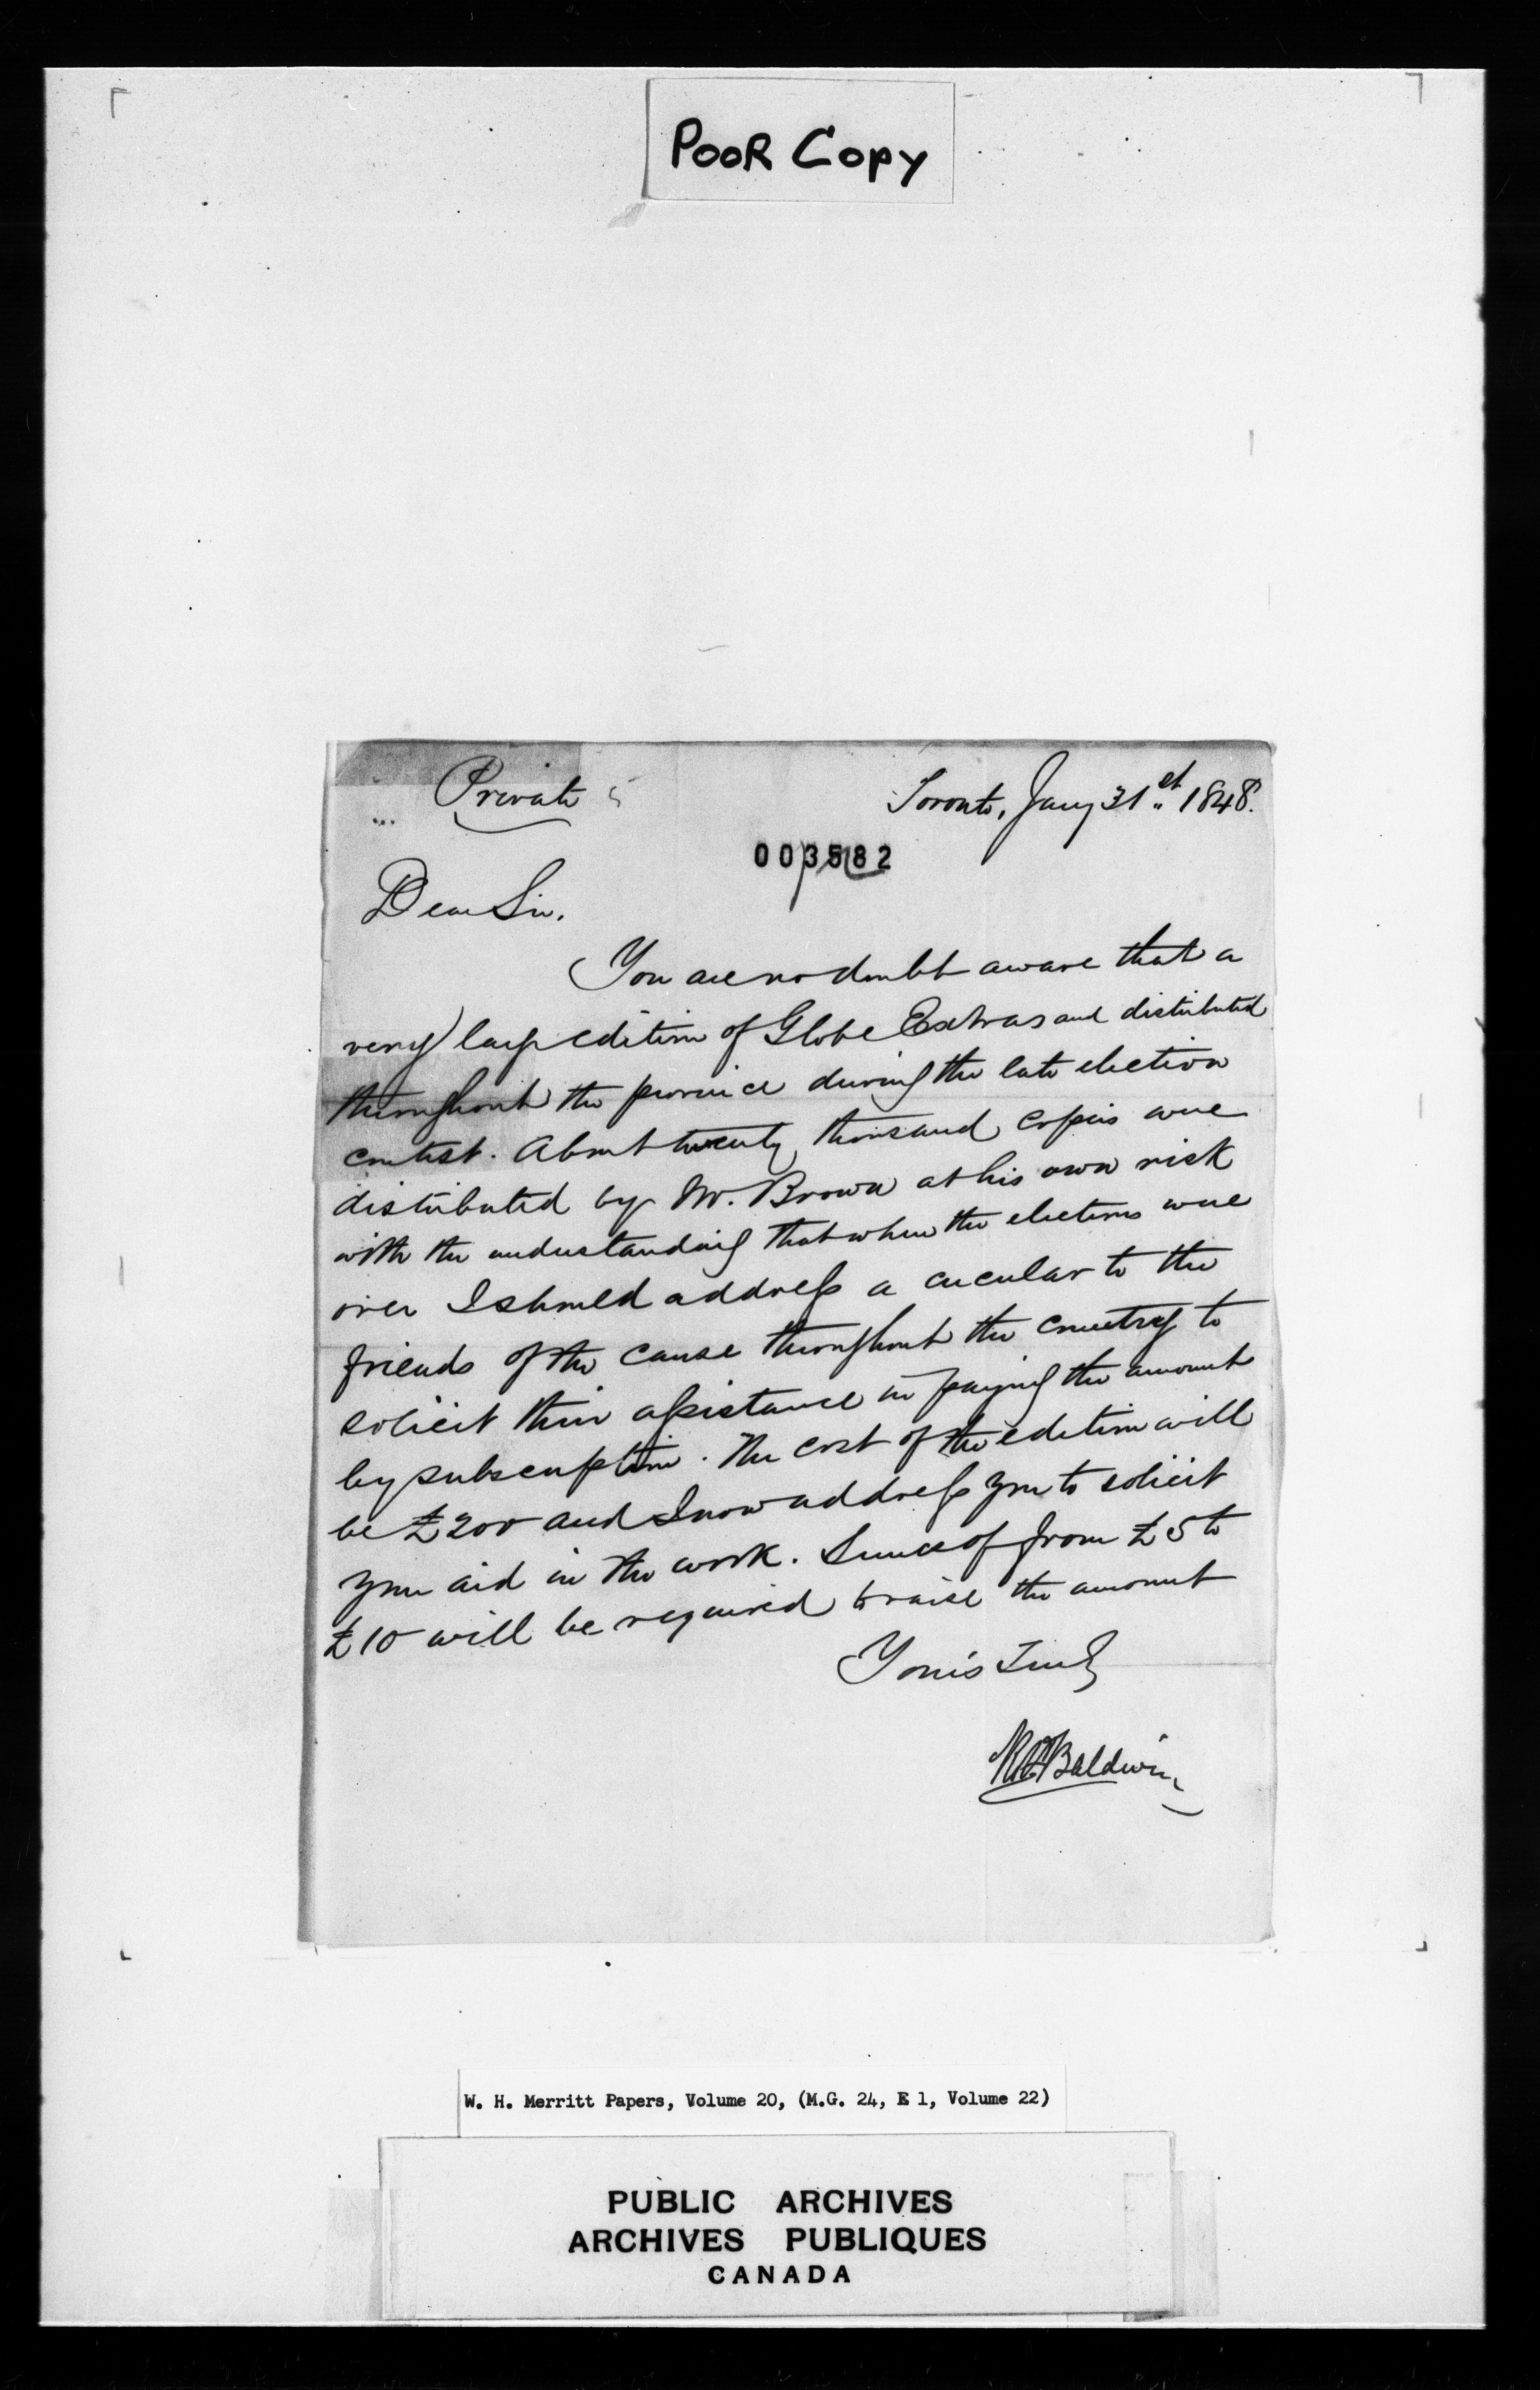 Poor Copy
Private
Toronto, Jany 31st 1848.
003582
Dear Sir.
You are no doubt aware that a
very large edition of Globe Extras and distributed
throughout the province during the late election
contest. About twenty thousand copies were
distributed by Mr. Brown at his own risk
with the understanding that when the elections were
over I should address a circular to the
friends of the cause throughout the country to
solicit their assistance in paying the amount
by subscription. The cost of the edition will
be £200 and I now address you to solicit
your aid in the work. Sums of from £5 to
£10 will be required to raise the amount
Yours Truly
Baldwin
W. H. Merritt Papers, Volume 20, (M.G. 24, E 1, Volume 22)
PUBLIC ARCHIVES
ARCHIVES PUBLIQUES
CANADA